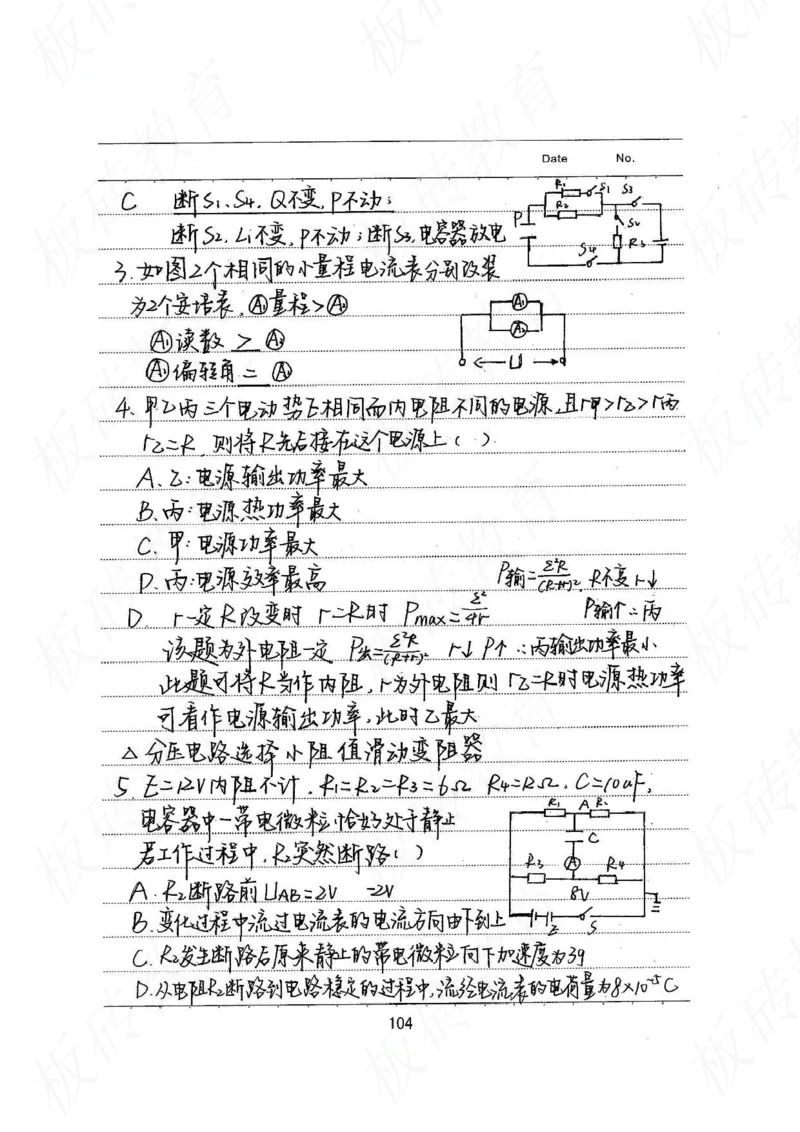 Date No.
C 断S1、S4, Q不变, P不动;
断S2, Li不变, P不动; 断S3, 电容器放电
R1 S1 S3
R2
P S2
S4 R3
3. 如图2个相同的小量程电流表分别改装
为2个安培表, A1量程>A2
A1读数 > A2
A1偏转角 = A2
A1
A2
U
4. 甲乙丙三个电动势E相同而内电阻不同的电源, 且r甲>r乙>r丙
r乙=R, 则将R先后接在这个电源上( )
A. 乙: 电源输出功率最大
B. 丙: 电源热功率最大
C. 甲: 电源功率最大
D. 丙: 电源效率最高
P输=Σ²R/(R+r)², R不变 r↓
D. r一定R改变时 r=R时 Pmax=Σ²/4r P输↑∴丙
该题为外电阻一定 P出=Σ²R/(R+r)² r↓ P↑ ∴丙输出功率最小
此题可将R当作内阻, r为外电阻则 r乙=R时电源热功率
可看作电源输出功率, 此时乙最大
△ 分压电路选择小阻值滑动变阻器
5. E=12V内阻不计, R1=R2=R3=6Ω R4=12Ω, C=10uF,
电容器中一带电微粒恰好处于静止
若工作过程中, R2突然断路( )
R1 A R2
C
R3 A R4
8V
E S
A. R2断路前UAB=2V -2V
B. 变化过程中流过电流表的电流方向由下到上
C. R2发生断路后原来静止的带电微粒向下加速度为3g
D. 从电阻R2断路到电路稳定的过程中, 流经电流表的电荷量为8×10⁻⁵C
104
板砖教育